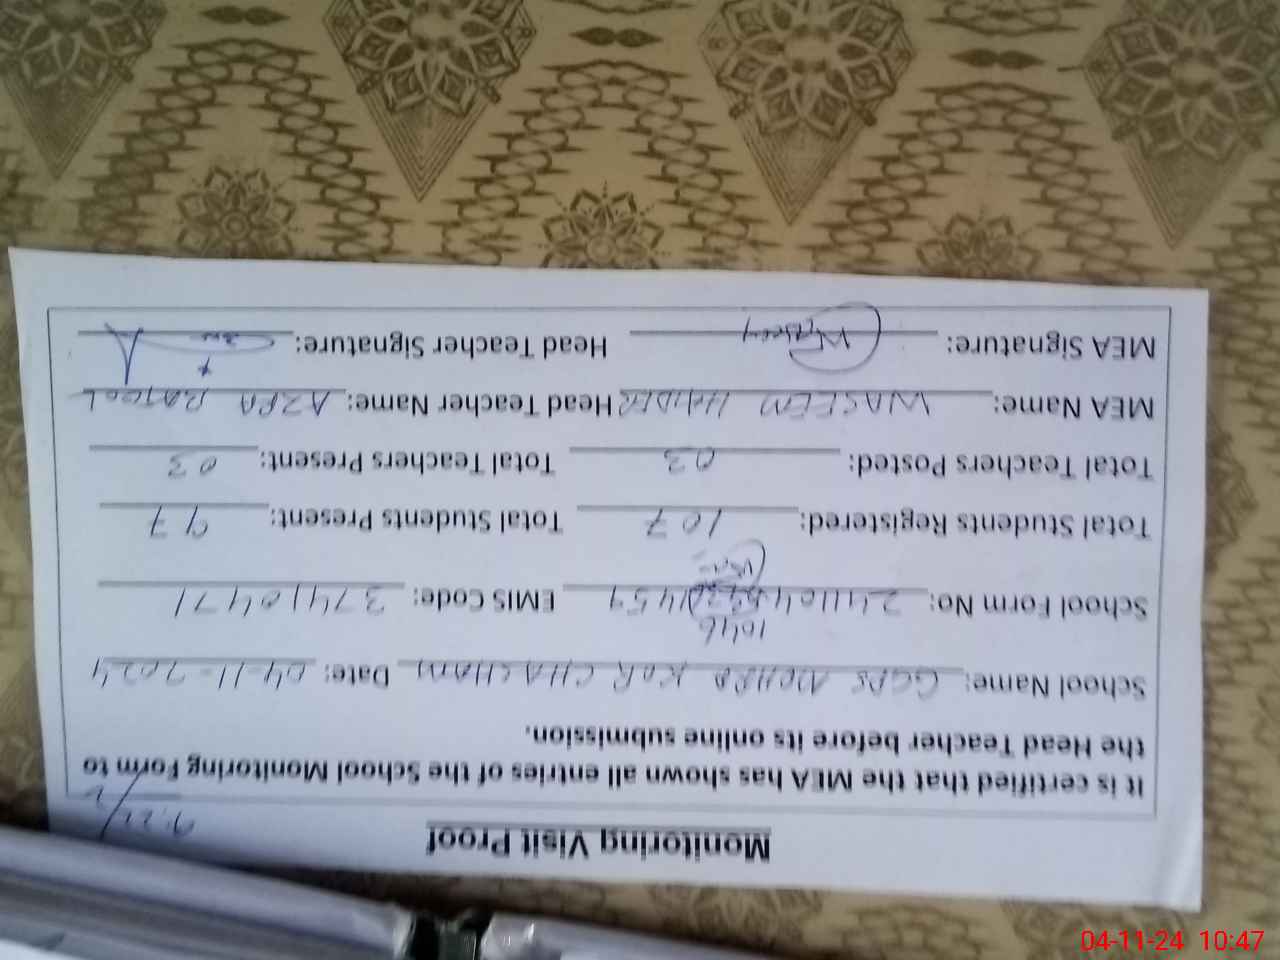 Monitoring Visit Proof
It is certified that the MEA has shown all entries of the School Monitoring Form to
the Head Teacher before its online submission.
School Name: GGPS MOHRA KOR CHASHAM Date: 04-11-2024
1046
School Form No: 241104 1459 EMIS Code: 37410471
Total Students Registered: 107 Total Students Present: 97
Total Teachers Posted: 03 Total Teachers Present: 03
MEA Name: WASEEM HAIDER Head Teacher Name: AZRA BATOOL
MEA Signature: Head Teacher Signature:
04-11-24 10:47